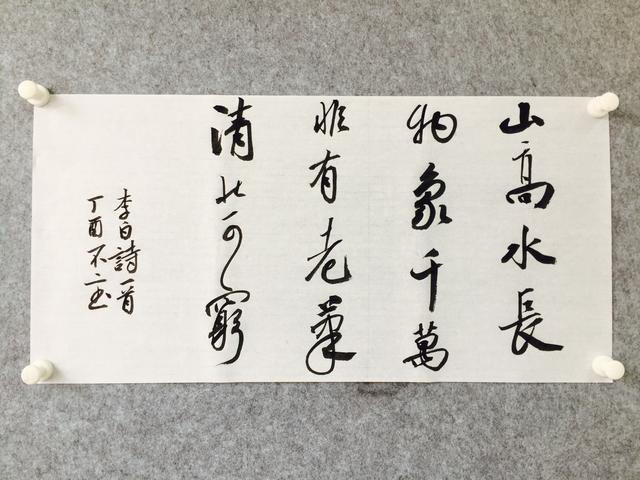 山高水長
物象千萬
非有老筆
清壯可窮
李白詩一首
丁酉不二